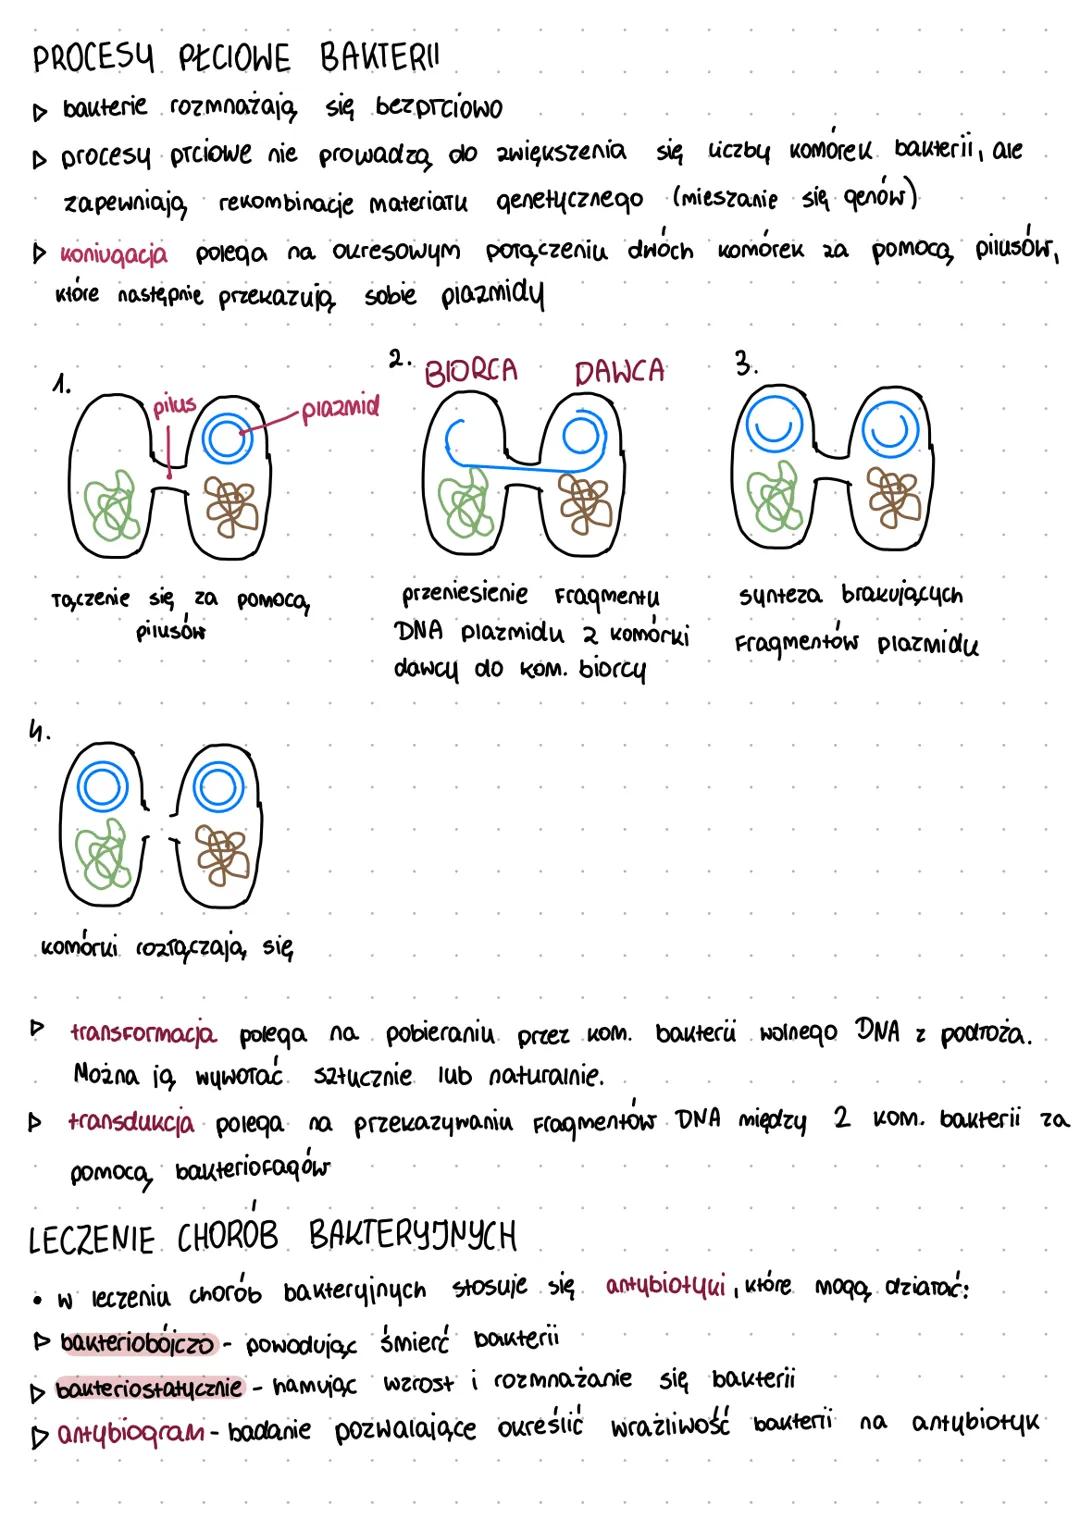 PROCESY PŁCIOWE BAKTERII
▷ bakterie rozmnażają się bezpłciowo
▷ procesy płciowe nie prowadzą do zwiększenia się liczby komórek bakterii, ale
zapewniają rekombinacje materiału genetycznego (mieszanie się genów)
▷ koniugacja polega na okresowym połączeniu dwóch komórek za pomocą pilusów,
które następnie przekazują sobie plazmidy
1.
pilus
plazmid
2.
BIORCA DAWCA
3.
łączenie się za pomocą
pilusów
przeniesienie fragmentu
DNA plazmidu z komórki
dawcy do kom. biorcy
synteza brakujących
fragmentów plazmidu
4.
komórki rozłączają się
▷ transformacja polega na pobieraniu przez kom. bakterii wolnego DNA z podłoża.
Można ją wywołać sztucznie lub naturalnie.
▷ transdukcja polega na przekazywaniu fragmentów DNA między 2 kom. bakterii za
pomocą bakteriofagów
LECZENIE CHORÓB BAKTERYJNYCH
• w leczeniu chorób bakteryjnych stosuje się antybiotyki, które mogą działać:
▷ bakteriobójczo - powodując śmierć bakterii
▷ bakteriostatycznie - hamując wzrost i rozmnażanie się bakterii
▷ antybiogram - badanie pozwalające określić wrażliwość bakterii na antybiotyk